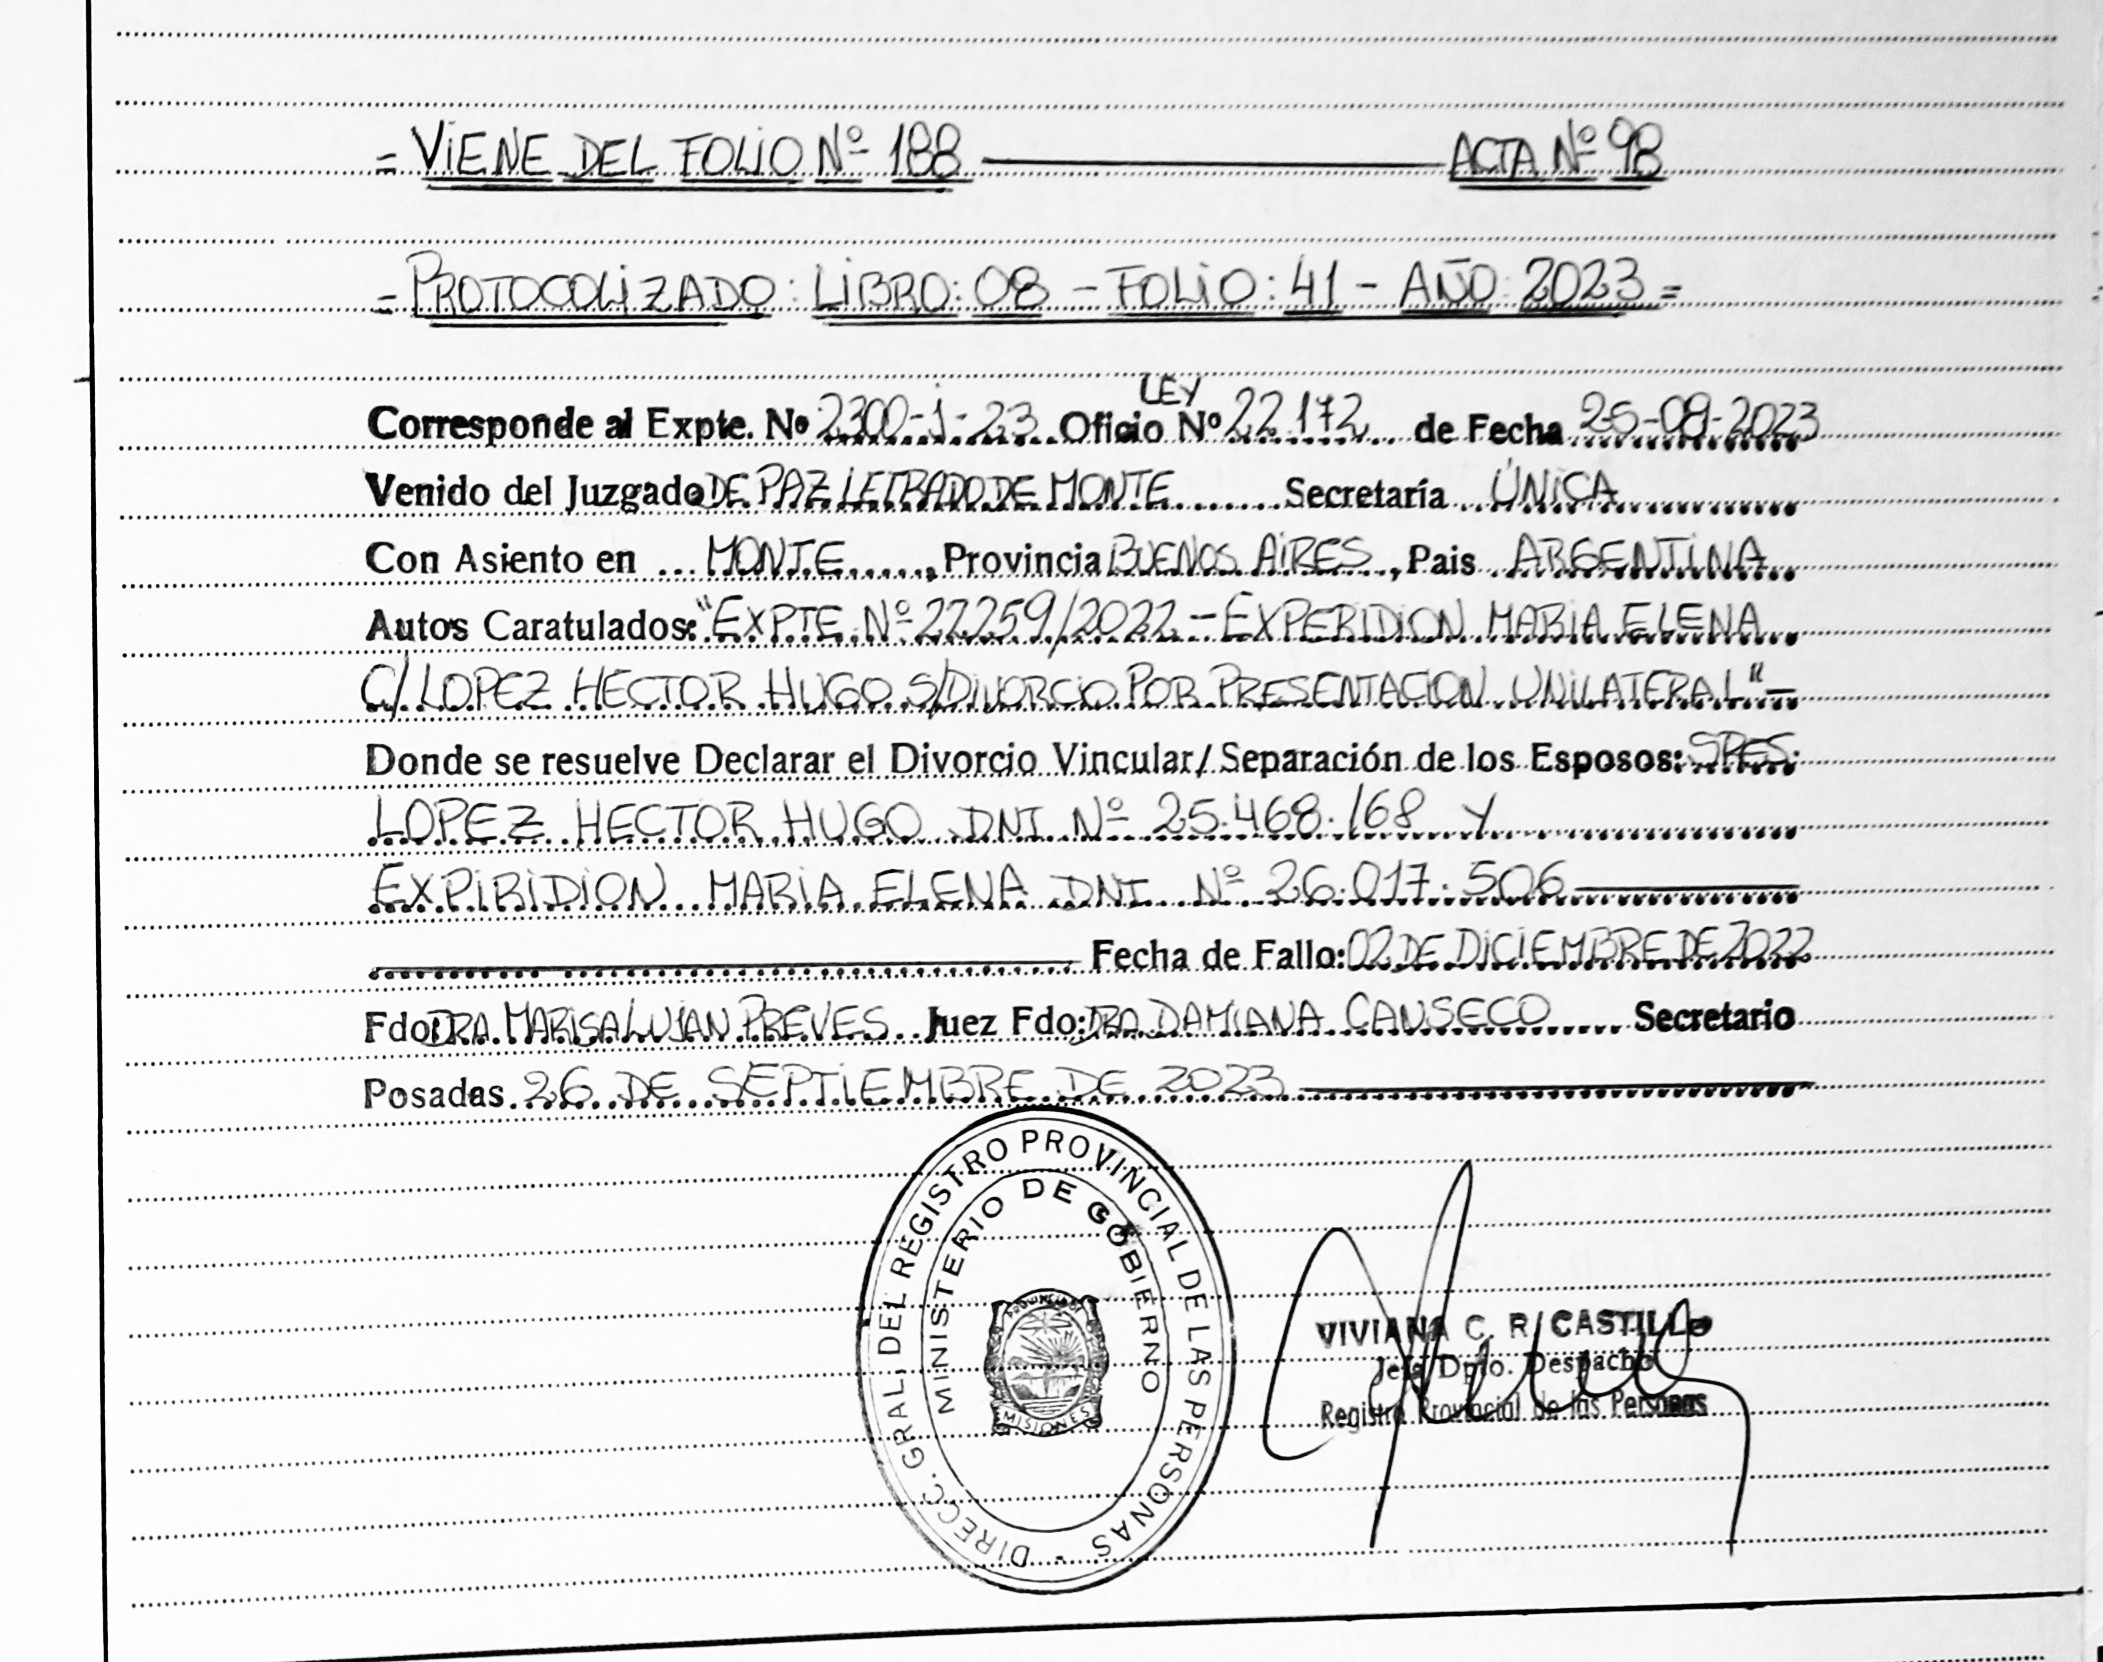 = VIENE DEL FOLIO Nº 188 ACTA Nº 98
= PROTOCOLIZADO: LIBRO: 08 - FOLIO: 41 - AÑO: 2023 =
LEY
Corresponde al Expte. Nº 2300-J-23 Oficio Nº 22172 de Fecha 25-08-2023
Venido del Juzgado DE PAZ LETRADO DE MONTE Secretaría ÚNICA
Con Asiento en MONTE, Provincia BUENOS AIRES, Pais ARGENTINA
Autos Caratulados: "EXPTE Nº 22259/2022 - EXPERIDION MARIA ELENA
C/ LOPEZ HECTOR HUGO S/DIVORCIO POR PRESENTACION UNILATERAL" -
Donde se resuelve Declarar el Divorcio Vincular/Separación de los Esposos: SRES.
LOPEZ HECTOR HUGO DNI Nº 25.468.168 Y
EXPIRIDION MARIA ELENA DNI Nº 26.017.506
Fecha de Fallo: 02 DE DICIEMBRE DE 2022
Fdo: DRA. MARISA LUJAN PREVES Juez Fdo: DRA DAMIANA CANSECO Secretario
Posadas 26 DE SEPTIEMBRE DE 2023
DIRECC. GRAL. DEL REGISTRO PROVINCIAL DE LAS PERSONAS -
MINISTERIO DE GOBIERNO
PROVINCIA DE
MISIONES
VIVIANA C. R. CASTILLO
Jefa Dpto. Despacho
Registro Provincial de las Personas